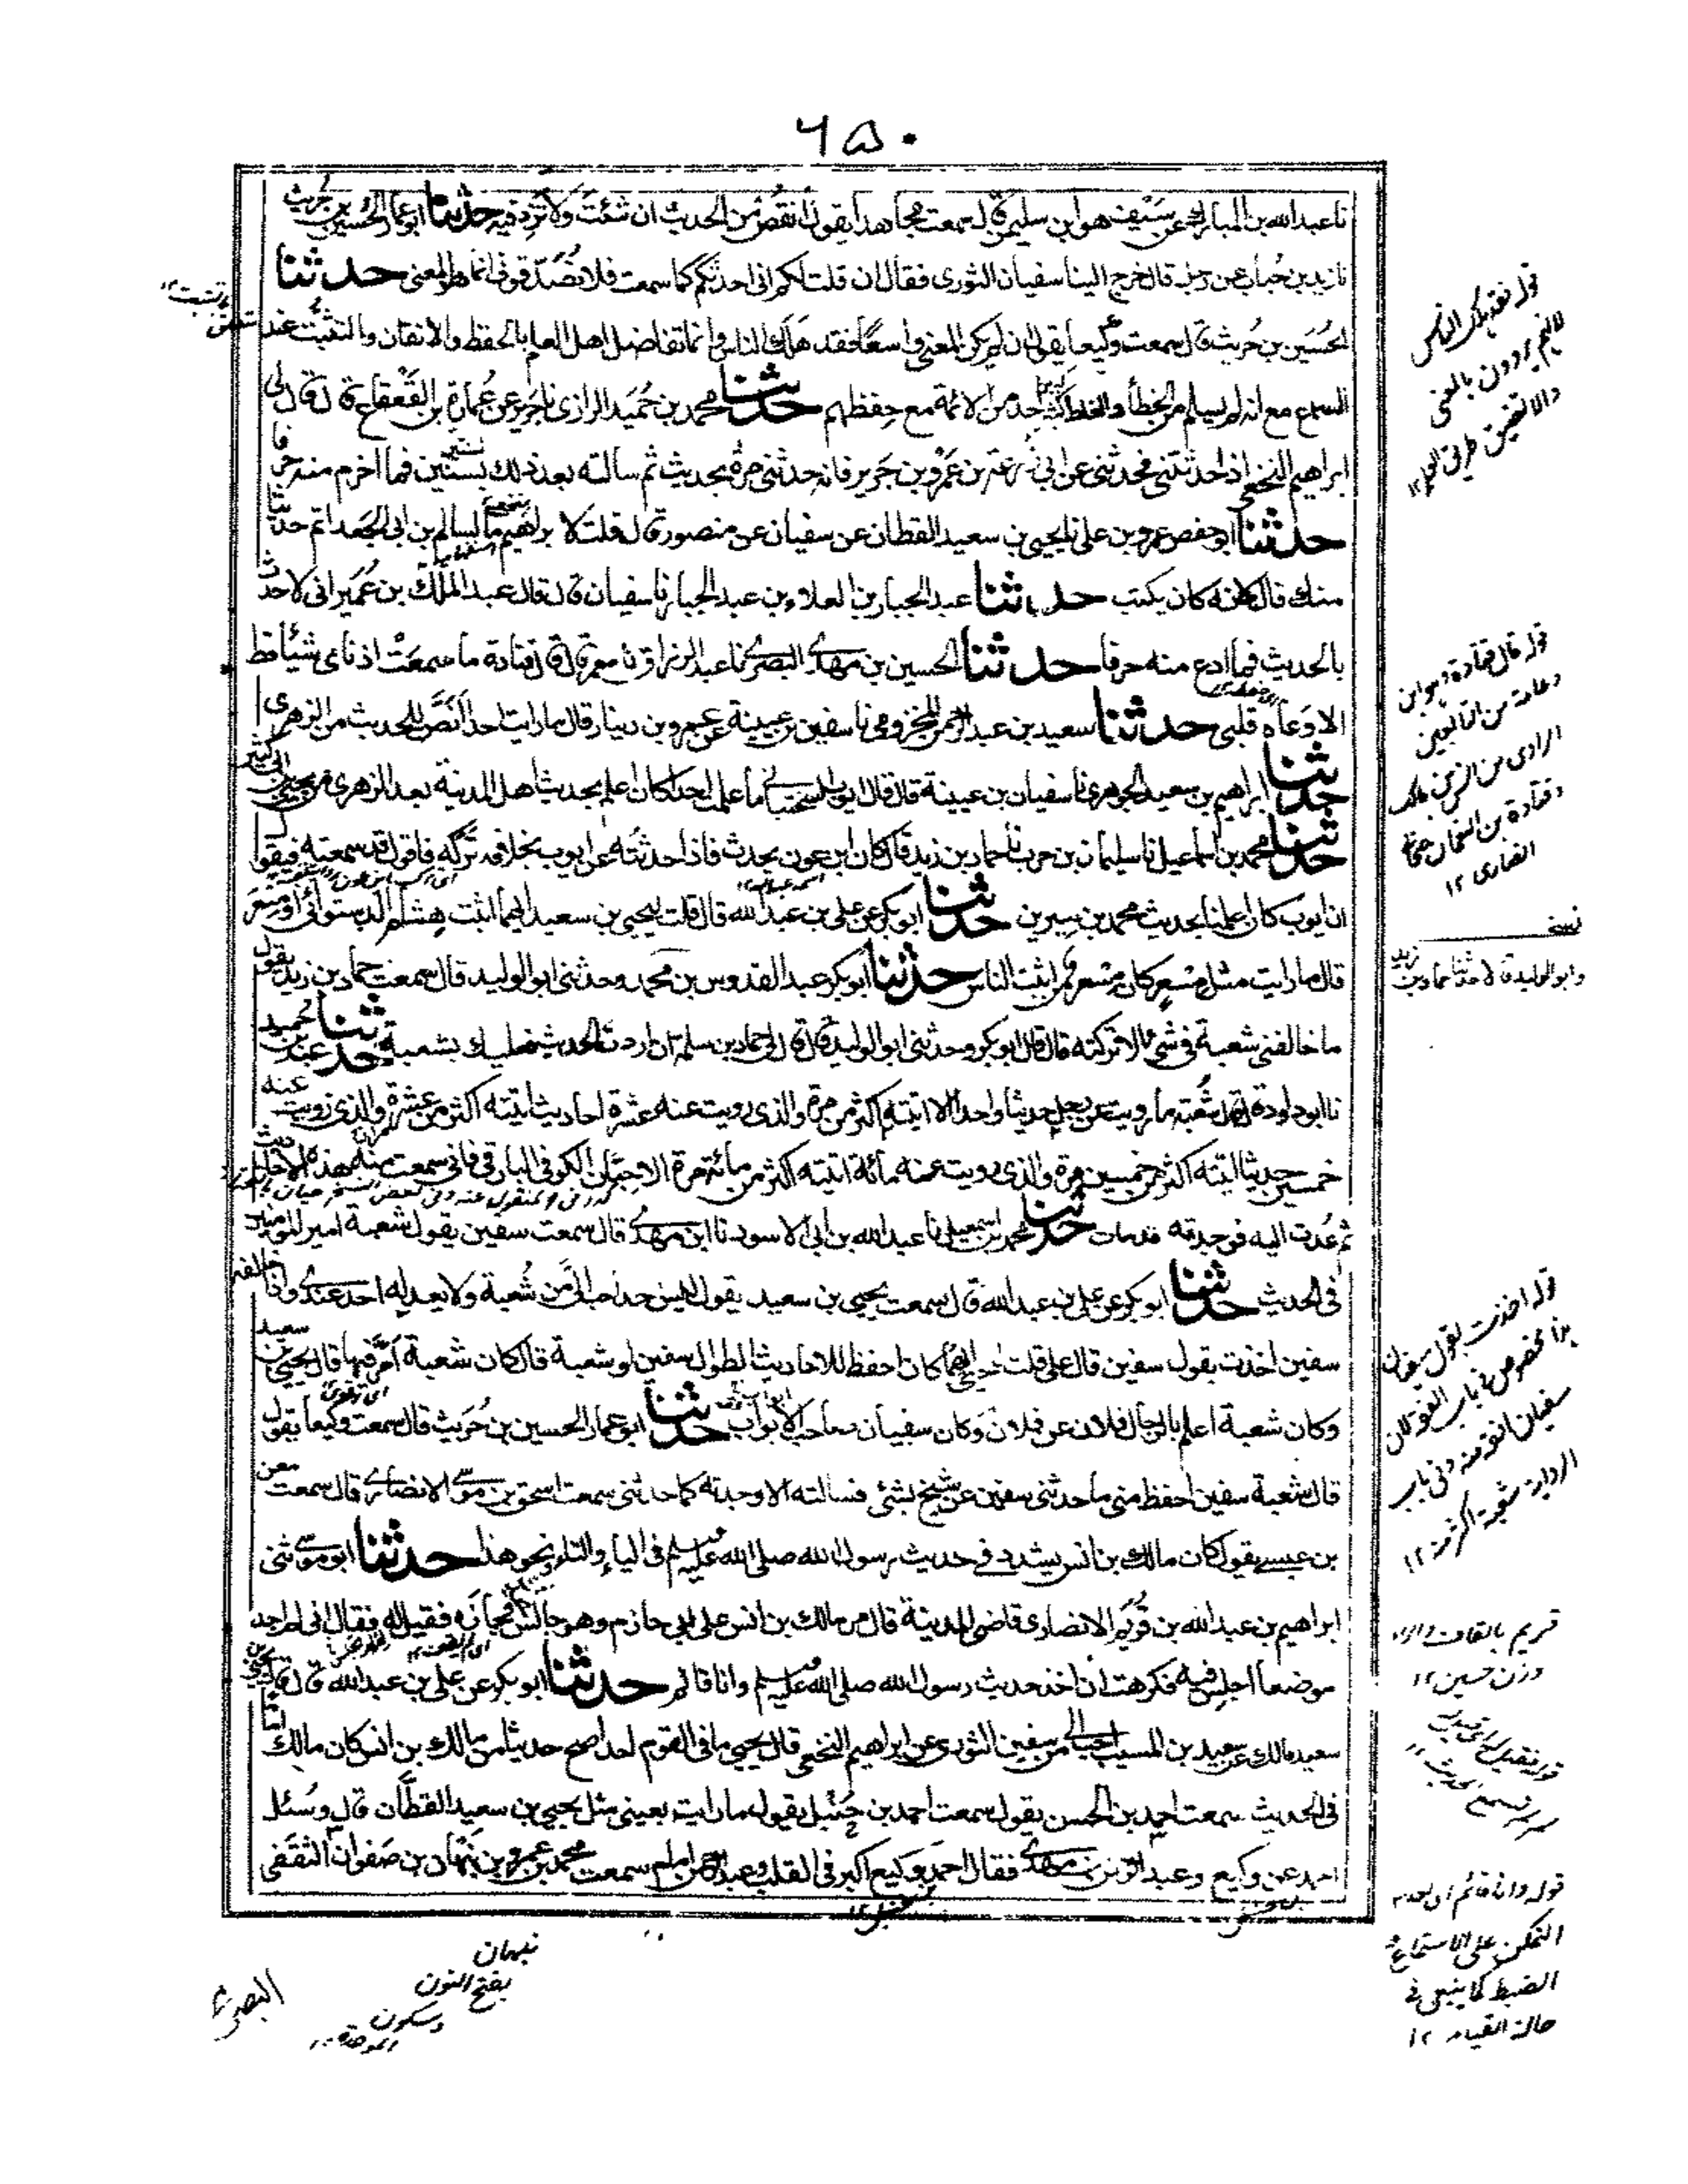 ٦٥٠
نا عبد الله بن المبارك عن سيف هو ابن سليمن قال سمعت مجاهدا يقول أنقص من الحديث ان شئت ولا تزد فيه حدثنا ابو عمار الحسين بن حريث
نا زيد بن حباب عن رجل قال خرج الينا سفيان الثوري فقال ان قلت لكم اني احدثكم كما سمعت فلا تصدقوني انما هو المعنى حدثنا
الحسين بن حريث قال سمعت وكيعا يقول ان لم يكن المعنى واسعا فقد هلك الناس وانما تفاضل اهل العلم بالحفظ والاتقان والتثبت عند
السماع مع انه لم يسلم من الخطأ والغلط كثير احد من الائمة مع حفظهم حدثنا محمد بن حميد الرازي نا جرير عن عمارة بن القعقاع قال قال لي
ابراهيم النخعي اذا حدثتني فحدثني عن ابي زرعة بن عمرو بن جرير فانه حدثني مرة بحديث ثم سالته بعد ذلك بسنتين فما اخرم منه حرفا
حدثنا ابو حفص عمرو بن علي نا يحيى بن سعيد القطان عن سفيان عن منصور قال قلت لابراهيم ما لسالم بن ابي الجعد اتم حديثا
منك قال لانه كان يكتب حدثنا عبد الجبار بن العلاء بن عبد الجبار نا سفيان قال قال عبد الملك بن عمير اني لاحدث
بالحديث فما ادع منه حرفا حدثنا الحسين بن مهدي البصري نا عبد الرزاق نا معمر قال قال قتادة ما سمعت اذناي شيئا قط
الا وعاه قلبي حدثنا سعيد بن عبد الرحمن المخزومي نا سفين بن عيينة عن عمرو بن دينار قال ما رايت احدا انص للحديث من الزهري
حدثنا ابراهيم بن سعيد الجوهري نا سفيان بن عيينة قال قال ايوب السختياني ما علمت احدا كان اعلم بحديث اهل المدينة بعد الزهري من يحيى بن ابي كثير
حدثنا محمد بن اسماعيل نا سليمان بن حرب نا حماد بن زيد قال كان ابن عون يحدث فاذا حدثته عن ايوب بخلافه تركه فاقول قد سمعته فيقول
ان ايوب كان اعلمنا بحديث محمد بن سيرين حدثنا ابو بكر عن علي بن عبد الله قال قلت ليحيى بن سعيد ايهما اثبت هشام الدستوائي او مسعر
قال ما رايت مثل مسعر كان مسعر من اثبت الناس حدثنا ابو بكر عبد القدوس بن محمد وحدثني ابو الوليد قال سمعت حماد بن زيد يقول
ما خالفني شعبة في شيء الا تركته قال قال ابو بكر وحدثني ابو الوليد قال قال لي حماد بن سلمة ان اردت الحديث فعليك بشعبة حدثنا عبد بن حميد
نا ابو داود قال قال شعبة ما رويت عن رجل حديثا واحدا الا اتيته اكثر من مرة والذي رويت عنه عشرة احاديث اتيته اكثر من عشرة والذي رويت عنه
خمسين حديثا اتيته اكثر من خمسين مرة والذي رويت عنه مائة اتيته اكثر من مائة مرة الا حيان الكوفي البارقي فاني سمعت منه هذه الاحاديث
ثم عدت اليه فوجدته قد مات حدثنا محمد بن اسمعيل نا عبد الله بن ابي الاسود نا ابن مهدي قال سمعت سفين يقول شعبة امير المومنين
في الحديث حدثنا ابو بكر عن علي بن عبد الله قال سمعت يحيى بن سعيد يقول ليس احد احب الي من شعبة ولا يعدله احد عندي واذا خالفه
سفين اخذت بقول سفين قال علي قلت ليحيى ايهما كان احفظ للاحاديث الطوال سفين او شعبة قال كان شعبة امر فيها قال يحيى بن سعيد
وكان شعبة اعلم بالرجال فلان عن فلان وكان سفيان صاحب الابواب حدثنا ابو عمار الحسين بن حريث قال سمعت وكيعا يقول
قال شعبة سفين احفظ مني ما حدثني سفين عن شيخ بشئ فسالته الا وجدته كما حدثني سمعت اسحق بن موسى الانصاري قال سمعت معن
بن عيسى يقول كان مالك بن انس يشدد في حديث رسول الله صلى الله عليه وسلم في الياء والتاء ونحو هذا حدثنا ابو موسى ثني
ابراهيم بن عبد الله بن قريم الانصاري قاضي المدينة قال مر مالك بن انس على ابي حازم وهو جالس فجازه فقيل له فقال اني لم اجد
موضعا اجلس فيه فكرهت ان اخذ حديث رسول الله صلى الله عليه وسلم وانا قائم حدثنا ابو بكر عن علي بن عبد الله قال قال يحيى بن
سعيد مالك عن سعيد بن المسيب احب الي من سفين الثوري عن ابراهيم النخعي قال يحيى ما في القوم احد اصح حديثا من مالك بن انس كان مالك اماما
في الحديث سمعت احمد بن الحسن يقول سمعت احمد بن حنبل يقول ما رايت بعيني مثل يحيى بن سعيد القطان قال وسئل
احمد عن وكيع وعبد الرحمن بن مهدي فقال احمد وكيع اكبر في القلب وعبد الرحمن امام سمعت محمد بن عمرو بن نبهان بن صفوان الثقفي
قوله فقد هلك الناس
لانهم يروون بالمعنى
قوله قال قتادة وهو ابن
دعامة من التابعين
الراوي من انس بن مالك
وقتادة بن النعمان صحابي
انصاري ١٢
نسخة
وابو الوليد قالا حدثنا حماد بن زيد
قوله اخذت بقول سفيان
هذا مخصوص في باب الفقه لان
سفيان افقه منه وفي باب
الرواية شعبة اكثر منه ١٢
قريم بالقاف والراء
وزن حسين ١٢
قوله وانا قائم اي لعدم
التمكن على الاستماع
الضبط كما ينبغي في
حالة القيام ١٢
نبهان
بفتح النون
وسكون
الموحدة
البصري